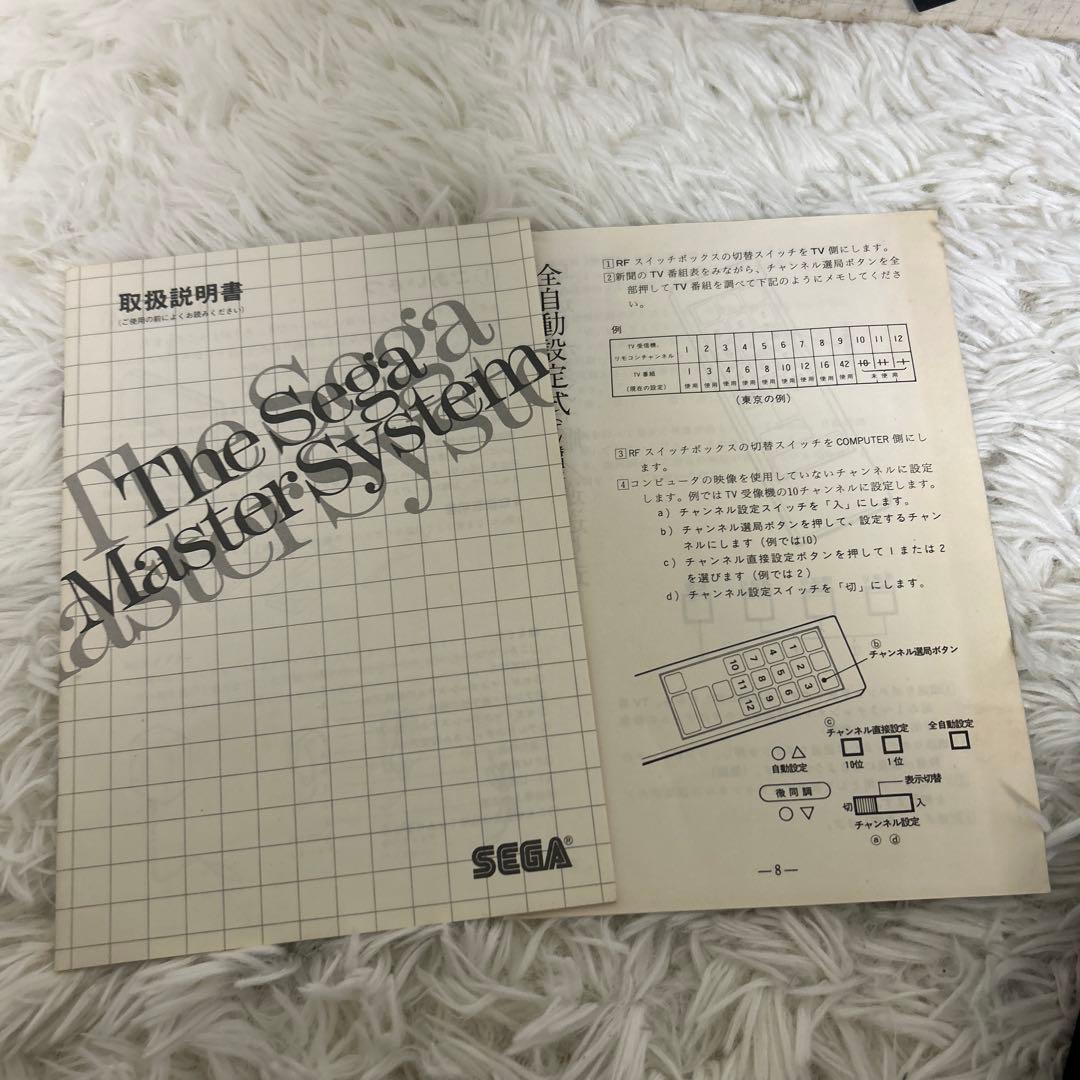 取扱説明書
(ご使用の前によくお読みください)
The Sega
Master System
SEGA®
全自動設定式
1 RF スイッチボックスの切替スイッチをTV 側にします。
2 新聞の TV 番組表をみながら、チャンネル選局ボタンを全
部押して TV 番組を調べて下記のようにメモしてくださ
い。
例
TV 受信機、リモコンチャンネル 1 2 3 4 5 6 7 8 9 10 11 12
TV 番組(現在の設定) 1 3 4 6 8 10 12 16 42 10 11 1
使用 使用 使用 使用 使用 使用 使用 使用 使用 未使用
(東京の例)
3 RF スイッチボックスの切替スイッチを COMPUTER 側にし
ます。
4 コンピュータの映像を使用していないチャンネルに設定
します。例では TV 受像機の10チャンネルに設定します。
a) チャンネル設定スイッチを「入」にします。
b) チャンネル選局ボタンを押して、設定するチャン
ネルにします (例では10)
c) チャンネル直接設定ボタンを押して 1 または 2
を選びます (例では 2 )
d) チャンネル設定スイッチを「切」にします。
1 4 7 10
2 5 8 11
3 6 9 12
ⓑ
チャンネル選局ボタン
ⓒ
チャンネル直接設定
全自動設定
○ △
自動設定
10位 1位
微同調
○ ▽
表示切替
切 入
チャンネル設定
ⓐ ⓓ
—8—